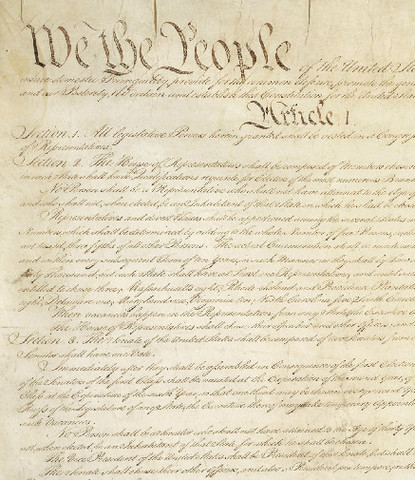 We the People of the United Sta
insure domestic Tranquility, provide for the common defence, promote the gene
and our Posterity, do ordain and establish this Constitution for the United States
Article. I.
Section. 1. All legislative Powers herein granted shall be vested in a Congress
of Representatives.
Section. 2. The House of Representatives shall be composed of Members chosen
in each State shall have Qualifications requisite for Electors of the most numerous Branch
No Person shall be a Representative who shall not have attained to the Age
and who shall not, when elected, be an Inhabitant of that State in which he shall be chosen
Representatives and direct Taxes shall be apportioned among the several States
Numbers, which shall be determined by adding to the whole Number of free Persons,
not taxed, three fifths of all other Persons. The actual Enumeration shall be made
and within every subsequent Term of ten Years, in such Manner as they shall by Law
thirty Thousand, but each State shall have at Least one Representative; and until
entitled to chuse three, Massachusetts eight, Rhode-Island and Providence Plantations
eight, Delaware one, Maryland six, Virginia ten, North Carolina five, South Carolina
When vacancies happen in the Representation from any State, the Executive
The House of Representatives shall chuse their Speaker and other Officers; and
Section. 3. The Senate of the United States shall be composed of two Senators from
Senator shall have one Vote.
Immediately after they shall be assembled in Consequence of the first Election
of the Senators of the first Class shall be vacated at the Expiration of the second Year,
Class at the Expiration of the sixth Year, so that one third may be chosen every second Year
Recess of the Legislature of any State, the Executive thereof may make temporary Appointments
such Vacancies.
No Person shall be a Senator who shall not have attained to the Age of thirty Years
not, when elected, be an Inhabitant of that State for which he shall be chosen.
The Vice President of the United States shall be President of the Senate, but shall
The Senate shall chuse their other Officers, and also a President pro tempore, in the